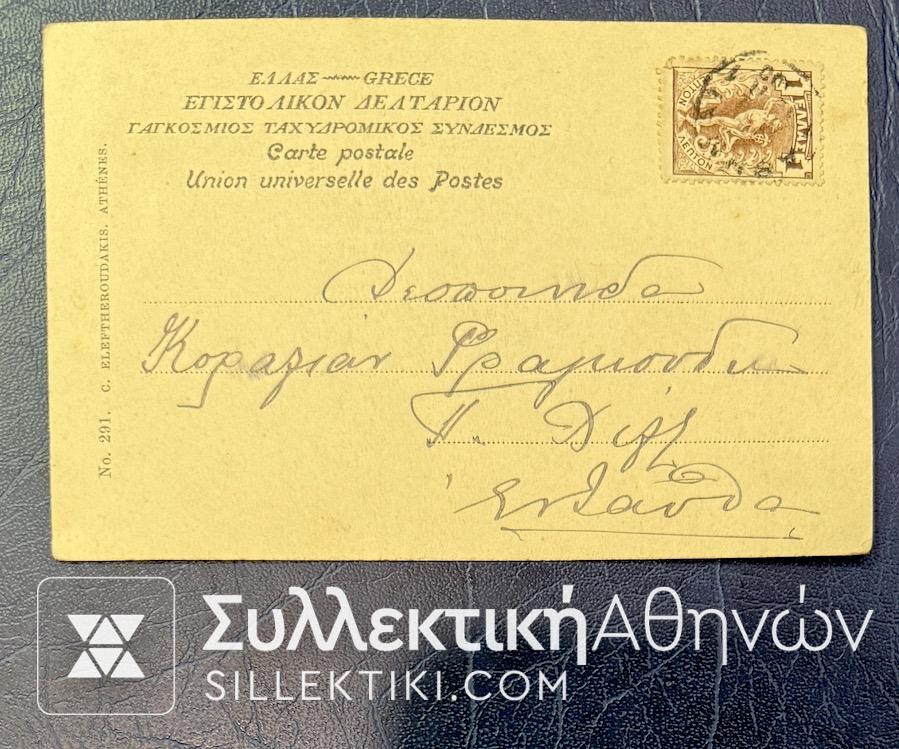 ΕΛΛΑΣ GRECE
ΕΠΙΣΤΟΛΙΚΟΝ ΔΕΛΤΑΡΙΟΝ
ΠΑΓΚΟΣΜΙΟΣ ΤΑΧΥΔΡΟΜΙΚΟΣ ΣΥΝΔΕΣΜΟΣ
Carte postale
Union universelle des Postes
No. 291. C. ELEFTHEROUDAKIS. ATHÈNES.
1 ΕΛΛΑΣ 1
ΛΕΠΤΟΝ
ΛΕΠΤΟΝ
Δεσποινίδα
Ἐνταῦθα
ΣυλλεκτικήΑθηνών
SILLEKTIKI.COM